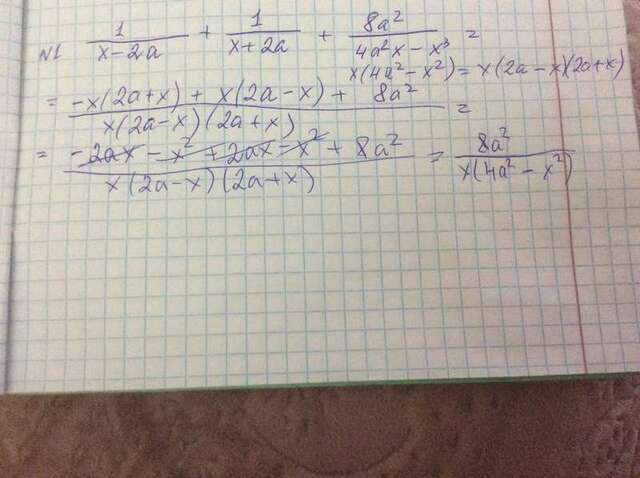 N1 1/(x-2a) + 1/(x+2a) + 8a²/(4a²x - x³) =
x(4a²-x²) = x(2a-x)(2a+x)
= (-x(2a+x) + x(2a-x) + 8a²)/(x(2a-x)(2a+x)) =
= (-2ax - x² + 2ax - x² + 8a²)/(x(2a-x)(2a+x)) = 8a²/(x(4a²-x²))